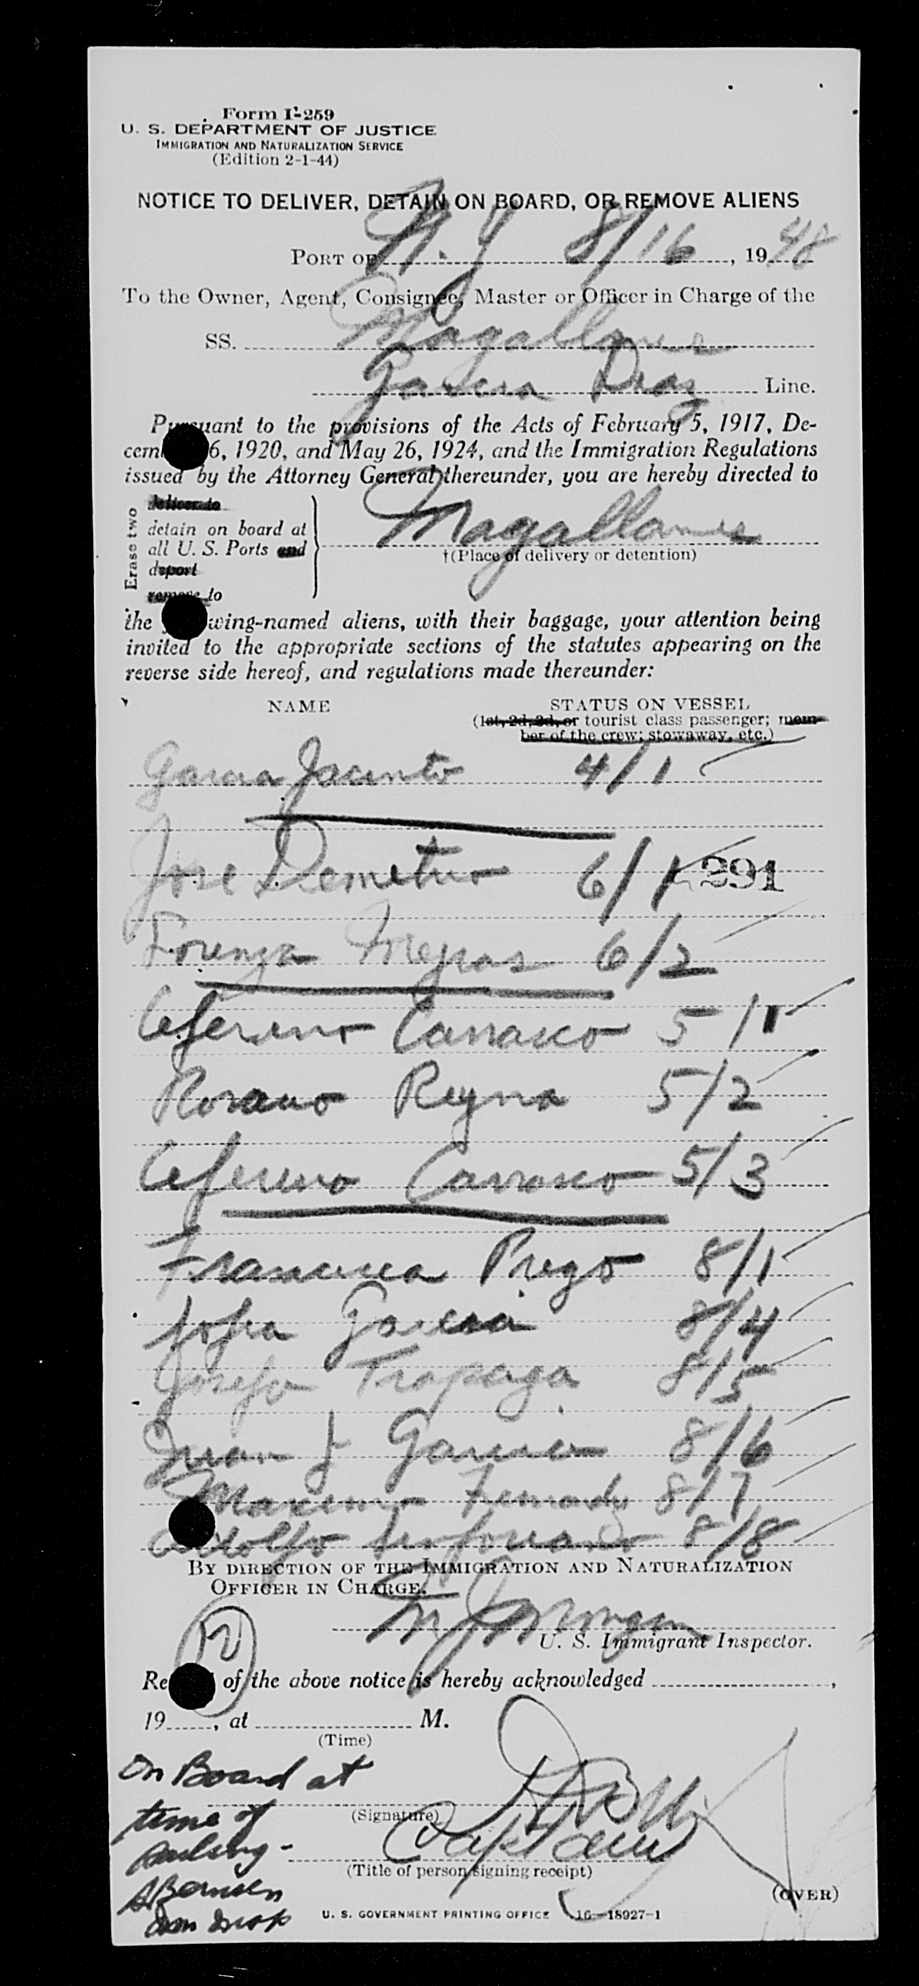 Form I-259
U. S. DEPARTMENT OF JUSTICE
IMMIGRATION AND NATURALIZATION SERVICE
(Edition 2-1-44)
NOTICE TO DELIVER, DETAIN ON BOARD, OR REMOVE ALIENS
PORT OF N. Y 8/16, 1948
To the Owner, Agent, Consignee, Master or Officer in Charge of the
SS. Magallanes
Garcia Diaz Line.
Pursuant to the provisions of the Acts of February 5, 1917, De-
cem 6, 1920, and May 26, 1924, and the Immigration Regulations
issued by the Attorney General thereunder, you are hereby directed to
Erase two
deliver to
detain on board at
all U. S. Ports and
deport
remove to
Magallanes
†(Place of delivery or detention)
the wing-named aliens, with their baggage, your attention being
invited to the appropriate sections of the statutes appearing on the
reverse side hereof, and regulations made thereunder:
NAME STATUS ON VESSEL
(1st, 2d, 3d, or tourist class passenger; mem-
ber of the crew; stowaway, etc.)
Garcia Jacinto 4/1
Jose Demetrio 6/1 291
6/2
Ceferino Carrasco 5/1
Rosario Reyna 5/2
Ceferino Carrasco 5/3
Francisca Prego 8/1
Garcia 8/4
Josefa Trapaga 8/5
Juan J Garcia 8/6
Maximo 8/7
Adolfo 8/8
BY DIRECTION OF THE IMMIGRATION AND NATURALIZATION
OFFICER IN CHARGE.
U. S. Immigrant Inspector.
12
Re of the above notice is hereby acknowledged ,
19 , at M.
(Time)
On Board at
time of
(Signature)
sailing -
Captain
(Title of person signing receipt)
(OVER)
U. S. GOVERNMENT PRINTING OFFICE 16—18927-1